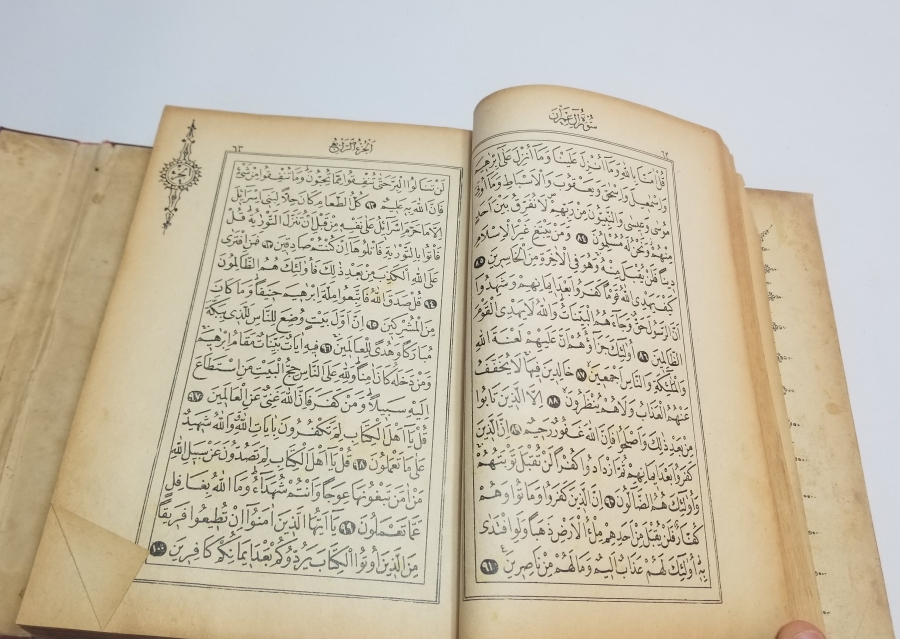 سُورَةُ آلِ عِمْرَانَ
٦٢
قُلْ اٰمَنَّا بِاللّٰهِ وَمَٓا اُنْزِلَ عَلَيْنَا وَمَٓا اُنْزِلَ عَلٰٓى اِبْرٰهِيمَ
وَاِسْمٰعِيلَ وَاِسْحٰقَ وَيَعْقُوبَ وَالْاَسْبَاطِ وَمَٓا اُو۫تِىَ
مُوسٰى وَعِيسٰى وَالنَّبِيُّونَ مِنْ رَبِّهِمْ لَا نُفَرِّقُ بَيْنَ اَحَدٍ
مِنْهُمْ وَنَحْنُ لَهُ مُسْلِمُونَ ٨٤ وَمَنْ يَبْتَغِ غَيْرَ الْاِسْلَامِ
دِينًا فَلَنْ يُقْبَلَ مِنْهُ وَهُوَ فِى الْاٰخِرَةِ مِنَ الْخَاسِرِينَ ٨٥
كَيْفَ يَهْدِى اللّٰهُ قَوْمًا كَفَرُوا بَعْدَ اِيمَانِهِمْ وَشَهِدُٓوا
اَنَّ الرَّسُولَ حَقٌّ وَجَٓاءَهُمُ الْبَيِّنَاتُ وَاللّٰهُ لَا يَهْدِى الْقَوْمَ
الظَّالِمِينَ ٨٦ اُولٰٓئِكَ جَزَٓاؤُهُمْ اَنَّ عَلَيْهِمْ لَعْنَةَ اللّٰهِ
وَالْمَلٰٓئِكَةِ وَالنَّاسِ اَجْمَعِينَ ٨٧ خَالِدِينَ فِيهَا لَا يُخَفَّفُ
عَنْهُمُ الْعَذَابُ وَلَا هُمْ يُنْظَرُونَ ٨٨ اِلَّا الَّذِينَ تَابُوا
مِنْ بَعْدِ ذٰلِكَ وَاَصْلَحُوا فَاِنَّ اللّٰهَ غَفُورٌ رَحِيمٌ ٨٩ اِنَّ الَّذِينَ
كَفَرُوا بَعْدَ اِيمَانِهِمْ ثُمَّ ازْدَادُوا كُفْرًا لَنْ تُقْبَلَ تَوْبَتُهُمْ
وَاُولٰٓئِكَ هُمُ الضَّٓالُّونَ ٩٠ اِنَّ الَّذِينَ كَفَرُوا وَمَاتُوا وَهُمْ
كُفَّارٌ فَلَنْ يُقْبَلَ مِنْ اَحَدِهِمْ مِلْءُ الْاَرْضِ ذَهَبًا وَلَوِ افْتَدٰى
بِهِ اُولٰٓئِكَ لَهُمْ عَذَابٌ اَلِيمٌ وَمَا لَهُمْ مِنْ نَاصِرِينَ ٩١
اَلْجُزْءُ الرَّابِعُ
٦٣
لَنْ تَنَالُوا الْبِرَّ حَتّٰى تُنْفِقُوا مِمَّا تُحِبُّونَ وَمَا تُنْفِقُوا مِنْ شَىْءٍ
فَاِنَّ اللّٰهَ بِهِ عَلِيمٌ ٩٢ كُلُّ الطَّعَامِ كَانَ حِلًّا لِبَنِٓى اِسْرَٓائِلَ
اِلَّا مَا حَرَّمَ اِسْرَٓائِلُ عَلٰى نَفْسِهِ مِنْ قَبْلِ اَنْ تُنَزَّلَ التَّوْرٰيةُ قُلْ
فَاْتُوا بِالتَّوْرٰيةِ فَاتْلُوهَٓا اِنْ كُنْتُمْ صَادِقِينَ ٩٣ فَمَنِ افْتَرٰى
عَلَى اللّٰهِ الْكَذِبَ مِنْ بَعْدِ ذٰلِكَ فَاُولٰٓئِكَ هُمُ الظَّالِمُونَ
٩٤ قُلْ صَدَقَ اللّٰهُ فَاتَّبِعُوا مِلَّةَ اِبْرٰهِيمَ حَنِيفًا وَمَا كَانَ
مِنَ الْمُشْرِكِينَ ٩٥ اِنَّ اَوَّلَ بَيْتٍ وُضِعَ لِلنَّاسِ لَلَّذِى بِبَكَّةَ
مُبَارَكًا وَهُدًى لِلْعَالَمِينَ ٩٦ فِيهِ اٰيَاتٌ بَيِّنَاتٌ مَقَامُ اِبْرٰهِيمَ
وَمَنْ دَخَلَهُ كَانَ اٰمِنًا وَلِلّٰهِ عَلَى النَّاسِ حِجُّ الْبَيْتِ مَنِ اسْتَطَاعَ
اِلَيْهِ سَبِيلًا وَمَنْ كَفَرَ فَاِنَّ اللّٰهَ غَنِىٌّ عَنِ الْعَالَمِينَ ٩٧
قُلْ يَٓا اَهْلَ الْكِتَابِ لِمَ تَكْفُرُونَ بِاٰيَاتِ اللّٰهِ وَاللّٰهُ شَهِيدٌ
عَلٰى مَا تَعْمَلُونَ ٩٨ قُلْ يَٓا اَهْلَ الْكِتَابِ لِمَ تَصُدُّونَ عَنْ سَبِيلِ اللّٰهِ
مَنْ اٰمَنَ تَبْغُونَهَا عِوَجًا وَاَنْتُمْ شُهَدَٓاءُ وَمَا اللّٰهُ بِغَافِلٍ
عَمَّا تَعْمَلُونَ ٩٩ يَٓا اَيُّهَا الَّذِينَ اٰمَنُٓوا اِنْ تُطِيعُوا فَرِيقًا
مِنَ الَّذِينَ اُو۫تُوا الْكِتَابَ يَرُدُّوكُمْ بَعْدَ اِيمَانِكُمْ كَافِرِينَ ١٠٠